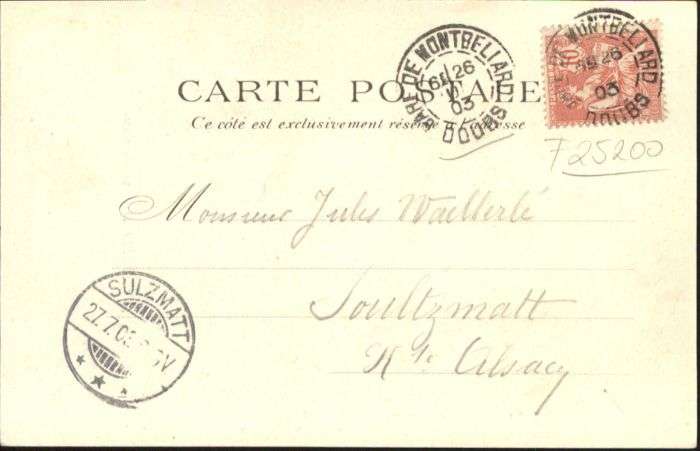 CARTE POSTALE
Ce côté est exclusivement réservé à l'adresse
GARE DE MONTBELIARD
6E 26
03
DOUBS
GARE DE MONTBELIARD
6E 26
03
DOUBS
10
F 25200
Monsieur Jules Waellerlé
Soultzmatt
Hte Alsace
SULZMATT
27.7.03